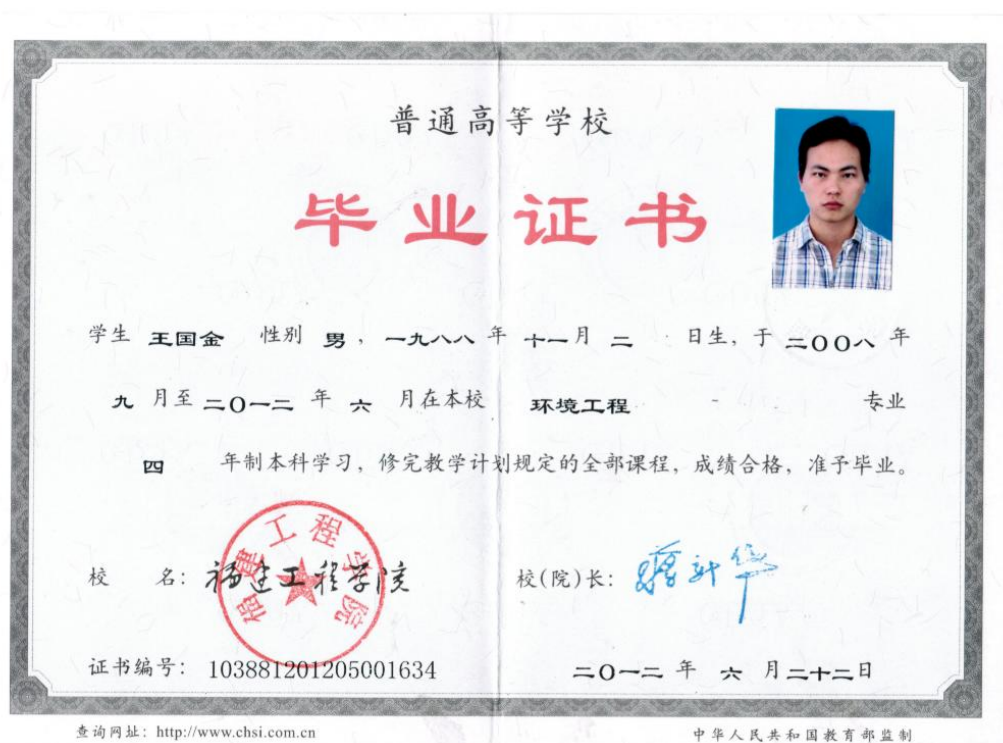 普通高等学校
毕业证书
学生 王国金 性别 男，一九八八年 十一月 二 日生，于 二〇〇八 年
九 月至 二〇一二 年 六 月在本校 环境工程 专业
四 年制本科学习，修完教学计划规定的全部课程，成绩合格，准予毕业。
福建工程学院
校 名：福建工程学院 校(院)长：蒋新华
证书编号：103881201205001634 二〇一二 年 六 月二十二日
查询网址：http://www.chsi.com.cn 中华人民共和国教育部监制